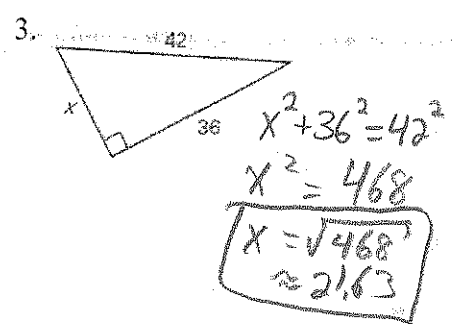 3.
42
x
36
x²+36²=42²
x²=468
x=√468
≈21.63